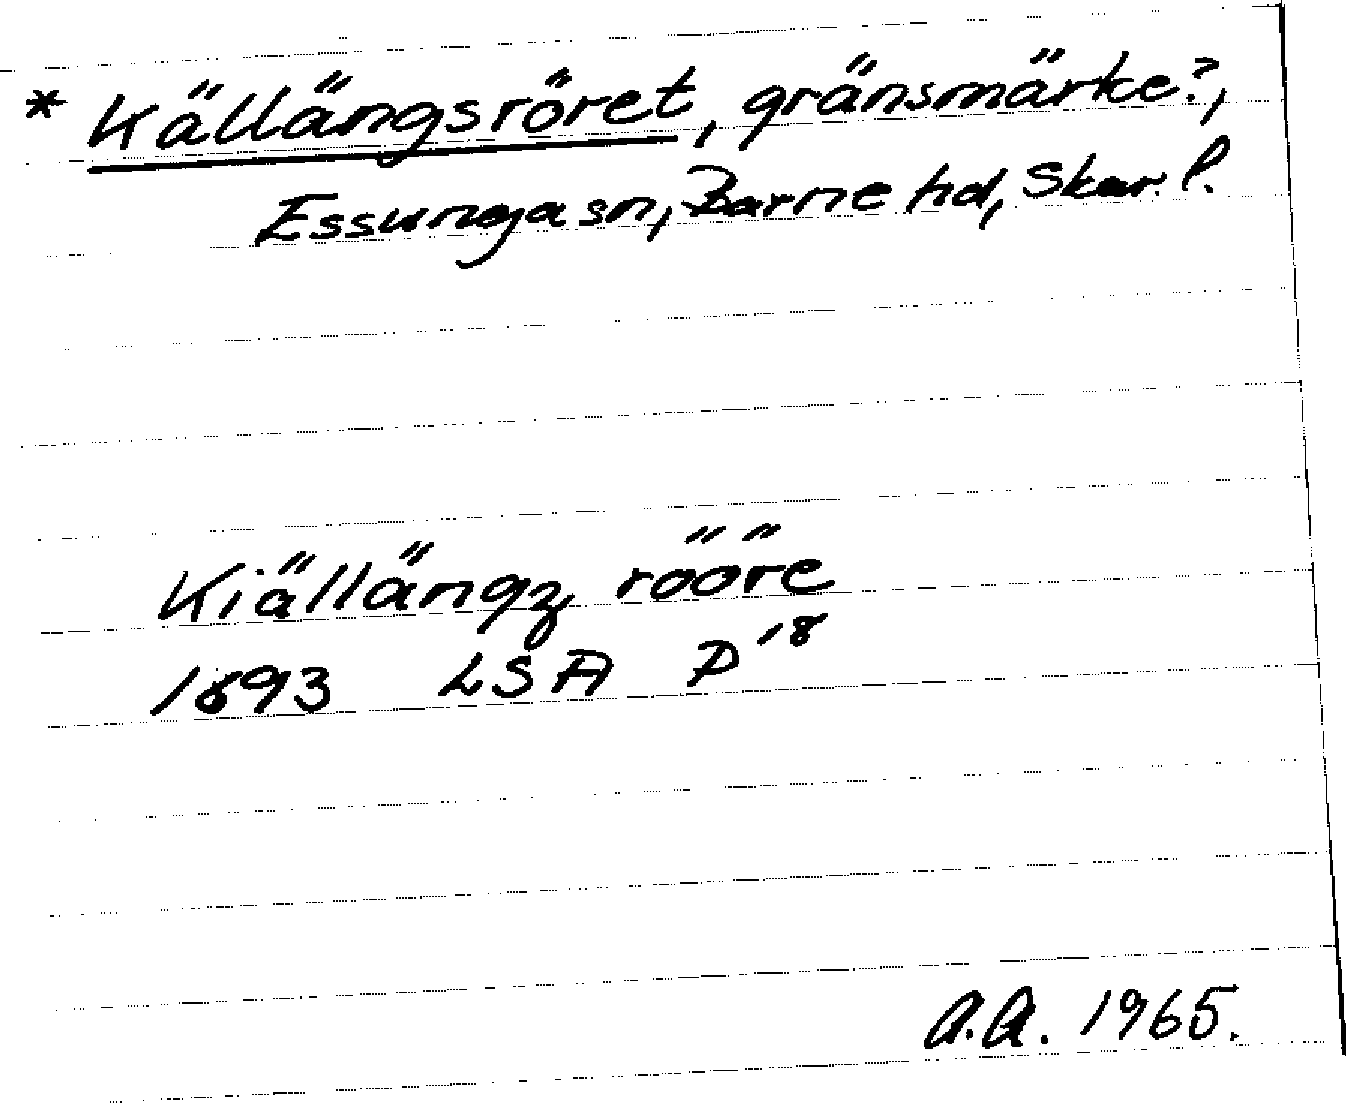 * Källängsröret, gränsmärke?,
Essunga sn, Barne hd, Skar. l.
Kiällängz rööre
1893 LSA P 18
A.A. 1965.